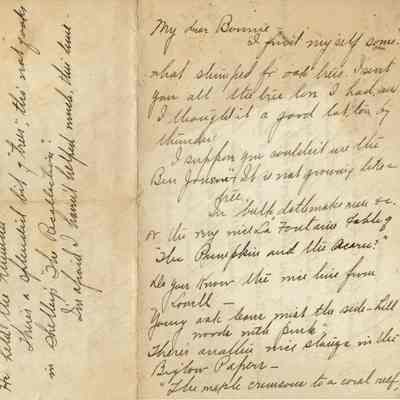 My dear Bonnie –
I find myself some-
what skimped for oak trees. I sent
you all the tree lore I had, and
I thought it a good lot, too by
thunder!
I suppose you couldn't use the
Ben Jonson "It is not growing like a
tree,
In bulk, doth make man &c.
or the my nice La Fontaine fable of
"The Pumpkin and the Acorn?"
Do you know the nice line from
Lowell –
Young oak leaves mist the side-hill
woods with pink"
There's another nice stanza in the
Biglow Papers –
"The maple crimsons to a coral reef,
There's a splendid bit of "trees", this not quote
in Shelley's "The Recollection"
I'm afraid I haven't helped much, this time.